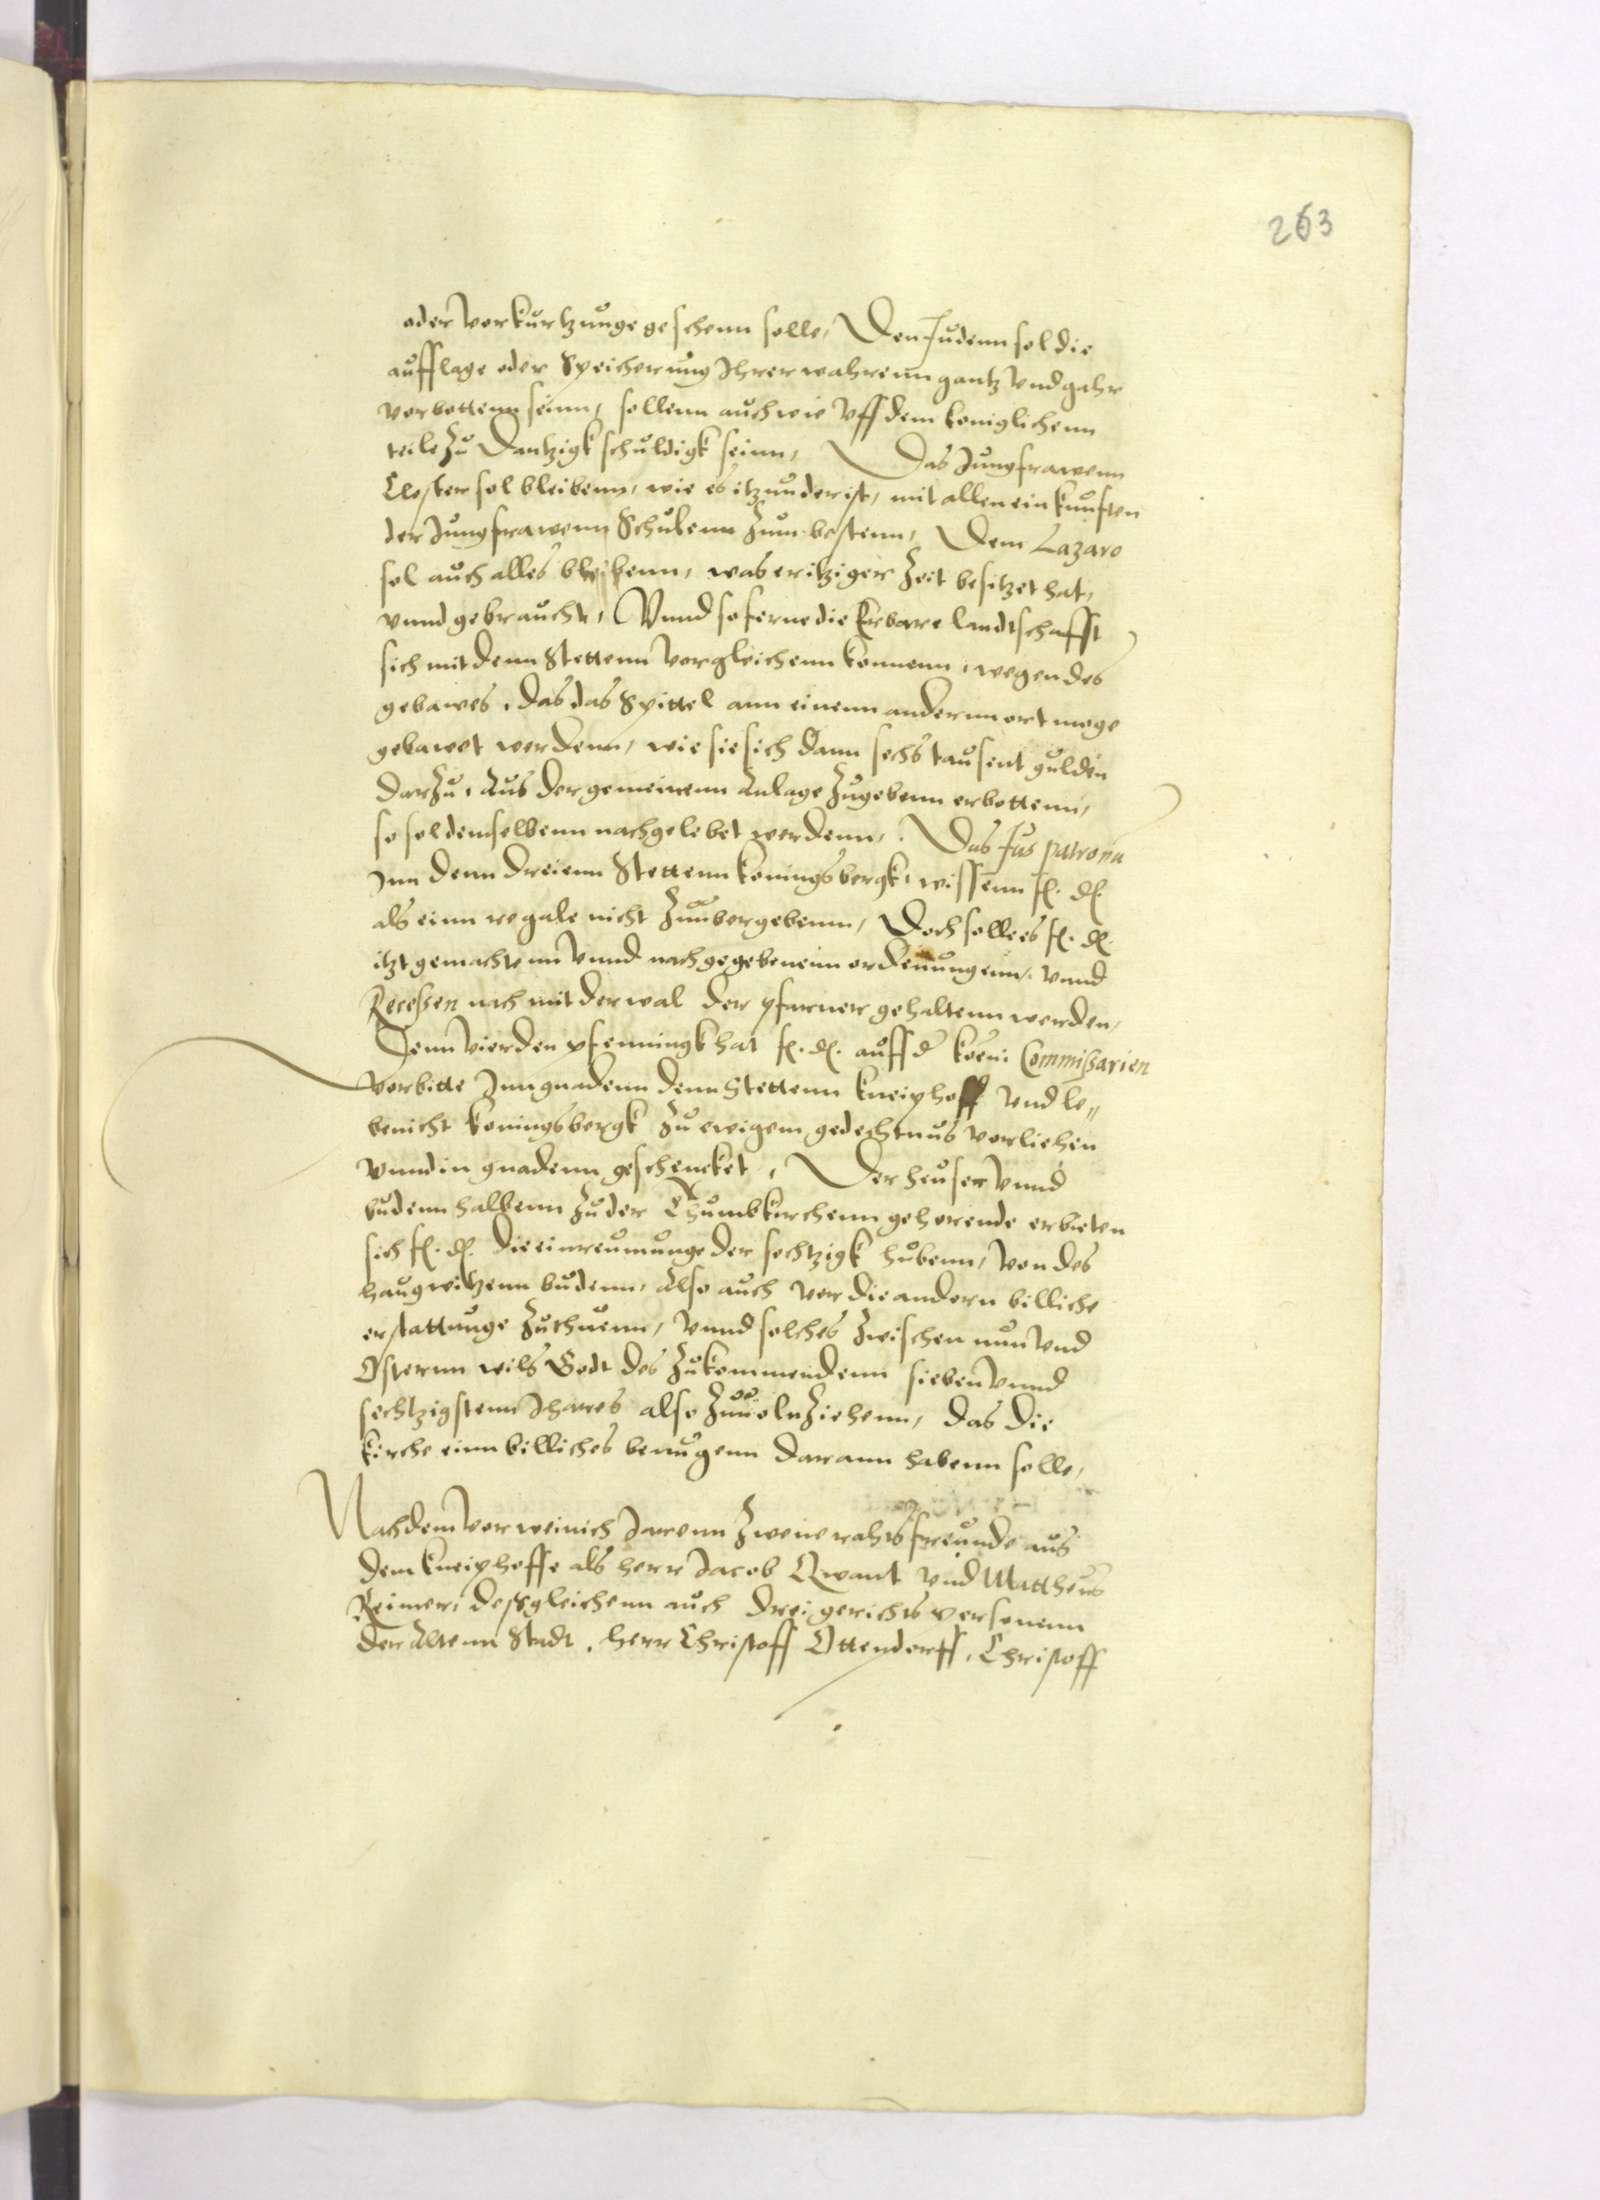 263
oder vorkurtzunge geschenn solle, Den Judenn sol die
aufflage oder Speicherung Ihrer wahrenn gantz vnd gahr
vorbottenn seinn, sollenn auch wie vff dem koniglichenn
teile zu Dantzigk schuldigk seinn, Das Jungfrawenn
Closter sol bleibenn, wie es itzunder ist, mit allen einkunften
der Jungfrawenn Schulenn zum bestenn, Dem Lazaro
sol auch alles bleibenn, was er itziger Zeit besitzet hat,
vnnd gebraucht, Vnnd soferne die Erbare landtschafft
sich mit denn Stettenn vorgleichenn konnenn, wegen des
gebawes, das das Spittel ann einenn andernn ort moge
gebawet werdenn, wie sie sich dann sechs tausent gulden
darzu, Aus der gemeinenn Anlage zugebenn erbottenn,
so sol demselbenn nachgelebet werdenn, Das Jus patrona
Inn denn dreienn Stettenn konningsbergk, wissenn f. d.
als einn regale nicht zuubergebenn, Doch solle es f. d.
itzt gemachtenn vnnd nachgegebenenn ordenungenn, vnnd
Recessen nach mit der wal der pfarner gehaltenn werden,
Denn vierden pfenningk hat f. d. auff d koeni Commissarien
vorbitte Inn gnadenn denn Stettenn kneiphoff vnd le„
benicht konningsbergk zu ewigem gedechtnus vorliehen
vnnd in gnadenn geschencket, Der heuser vnnd
budenn halbenn zu der Thumbkirchenn gehorende erbieten
sich f. d. die einreumunge der sechtzigk hubenn, von des
haugwitzenn budenn, Also auch vor die andern billiche
erstattunge zuthuenn, vnnd solches zwischen nun vnd
Osternn wils Godt des zukommendenn sieben vnnd
sechtzigstenn Ihares also zuuolnziehenn, das die
kirche einn billiches benugenn darann habenn solle,
Nachdem vor weinich Jarenn zwene rahts freunde aus
dem kneiphoffe als herr Jacob Qwant vnd Mattheus
Reimer, desgleichenn auch drei gerichts personenn
der Altenn Stadt, herr Christoff Ottendorff, Christoff